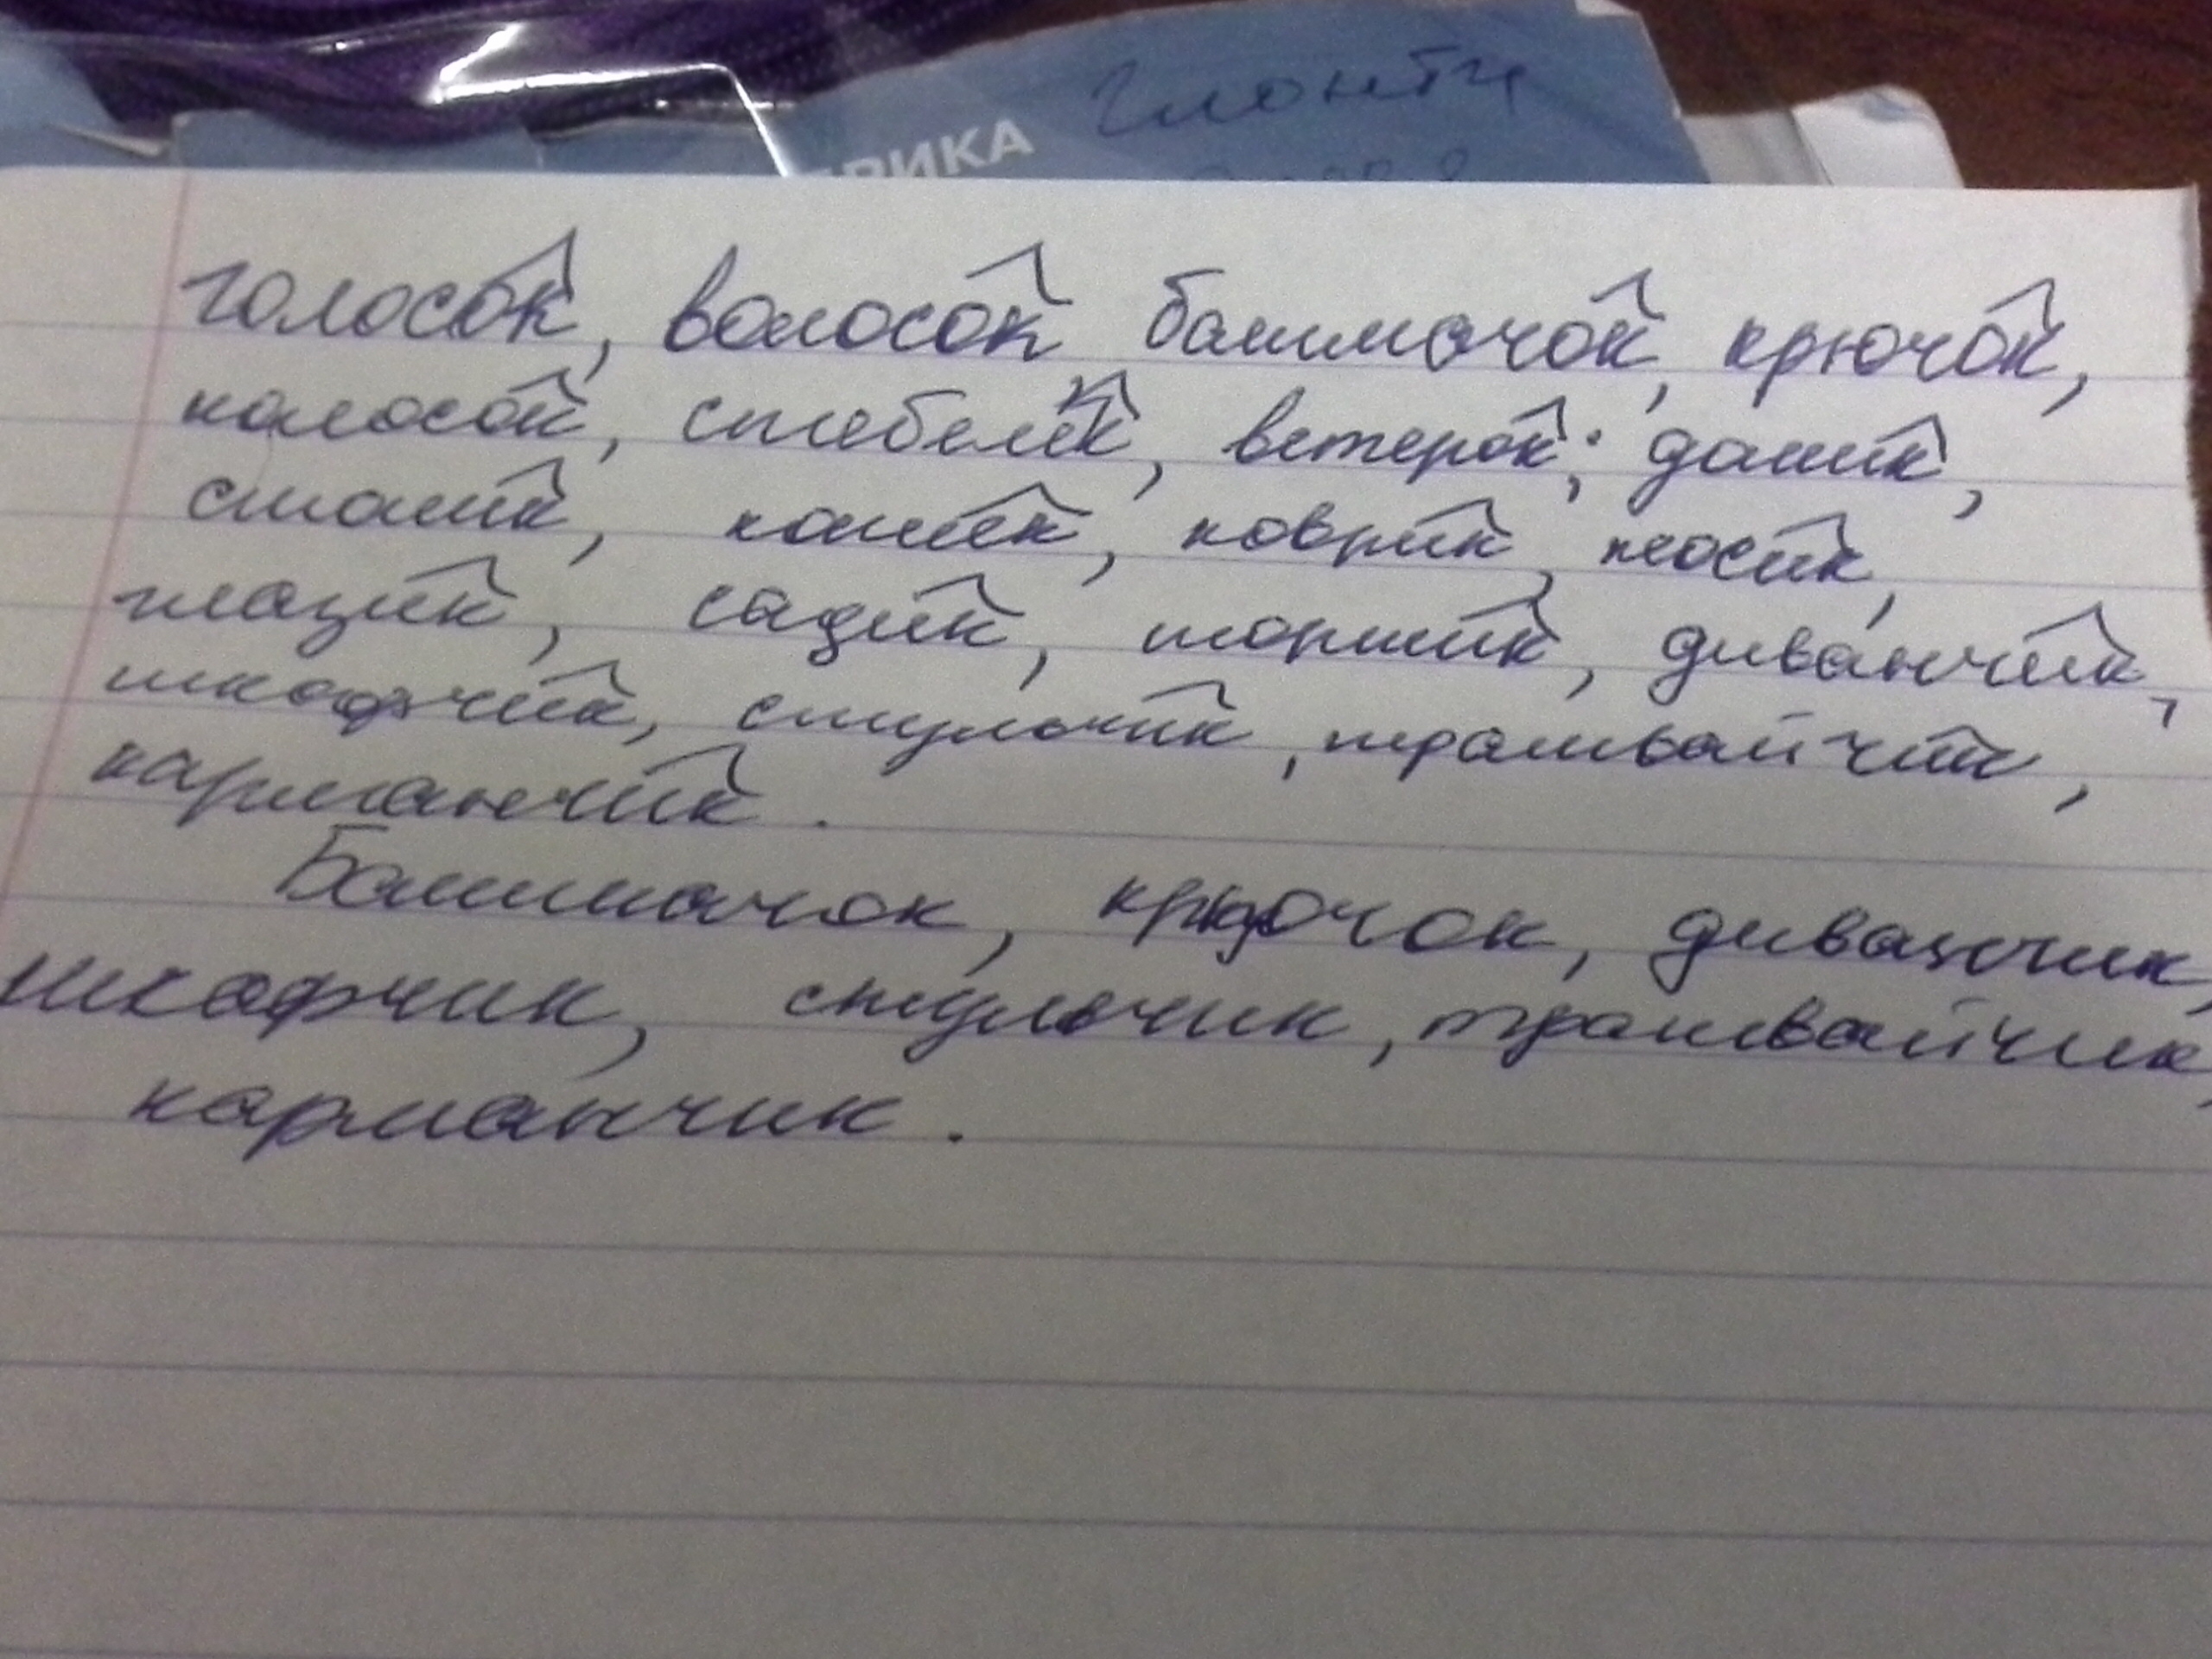 ЕРИКА
голосок, волосок башмачок, крючок,
колосок, стебелёк, ветерок; домик,
столик, комик, коврик, носик,
глазик, садик, тортик, диванчик,
шкафчик, стульчик, трамвайчик,
карманчик.
Башмачок, крючок, диванчик,
шкафчик, стульчик, трамвайчик,
карманчик.